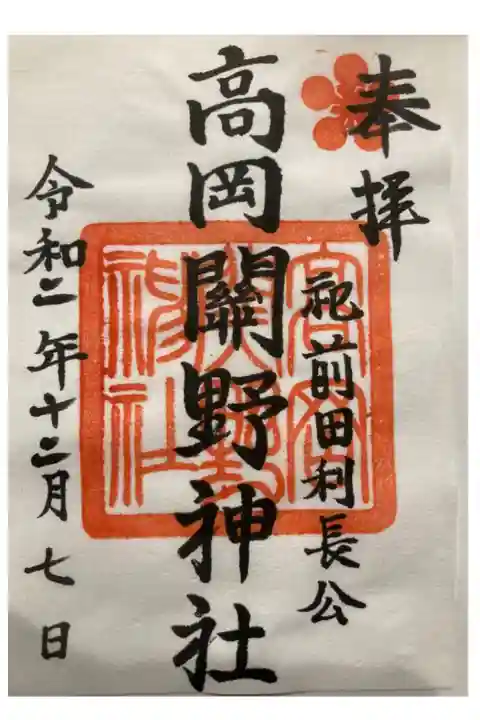 奉拝
祀前田利長公
高岡關野神社
令和二年十二月七日
高岡
關野
神社